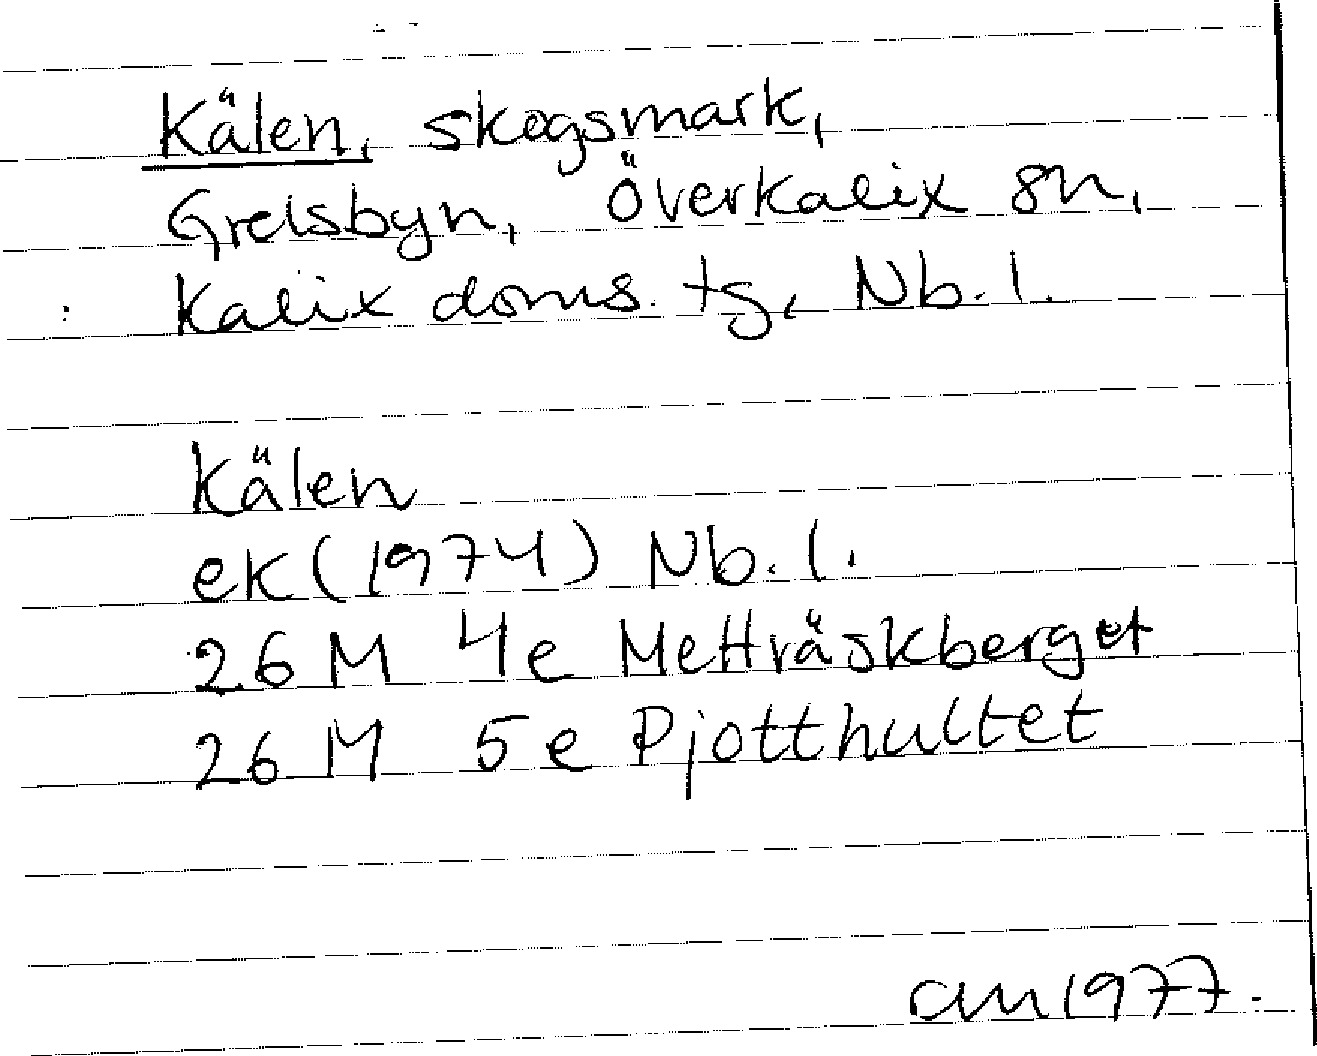 Kälen, skogsmark,
Grelsbyn, Överkalix sn,
Kalix doms. tg, Nb. l.
Kälen
ek (1974) Nb. l.
26 M 4e Metträskberget
26 M 5e Pjotthultet
am 1977.